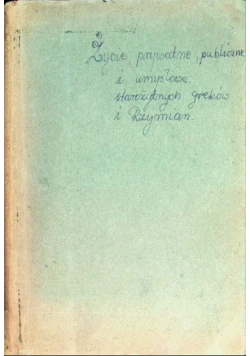 Życie prywatne, publiczne
i umysłowe
starożytnych greków
i Rzymian.